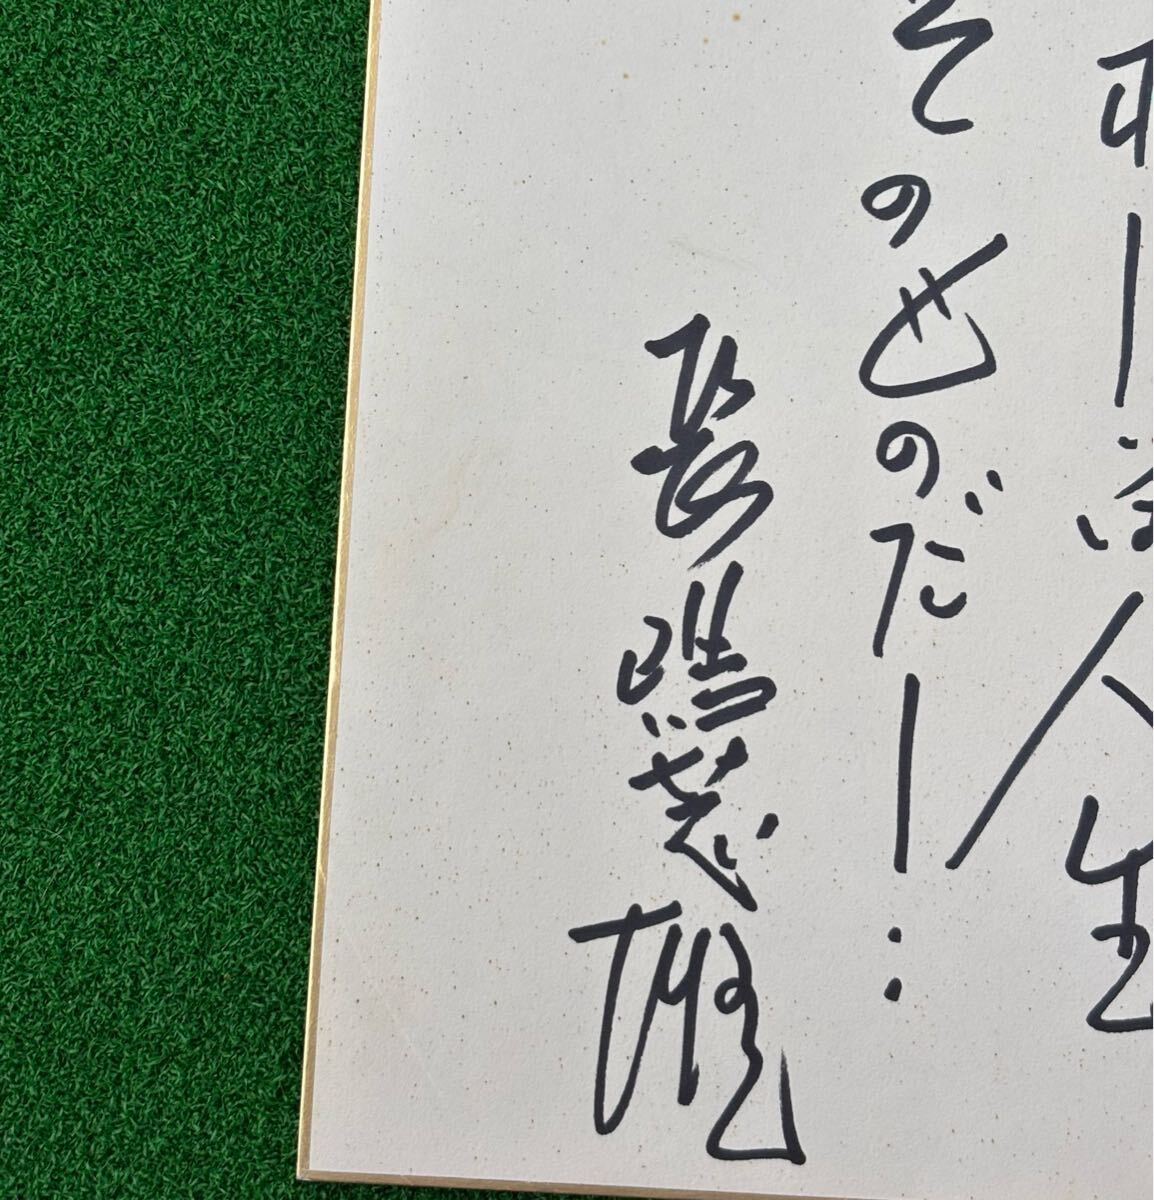 人生
そのものだー
長嶋茂雄